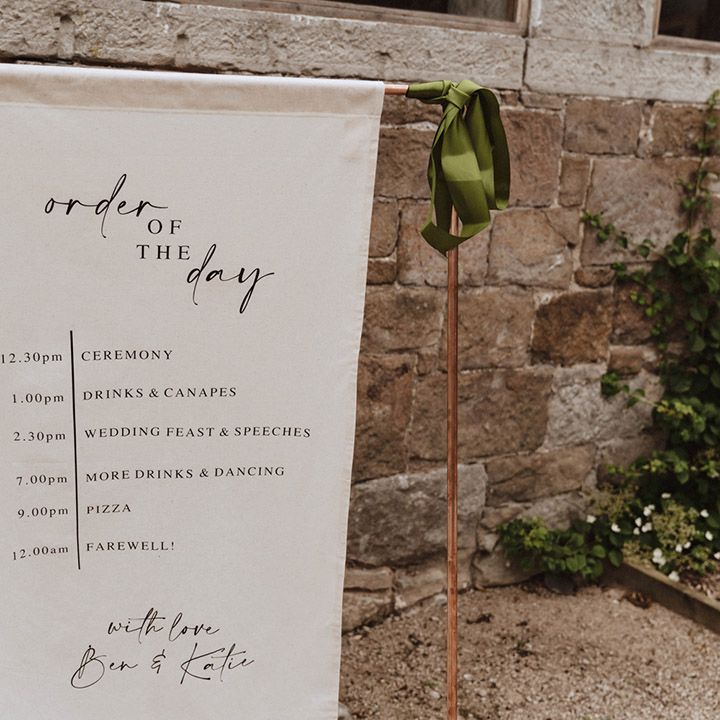 order
OF
THE
day
12.30pm CEREMONY
1.00pm DRINKS & CANAPES
2.30pm WEDDING FEAST & SPEECHES
7.00pm MORE DRINKS & DANCING
9.00pm PIZZA
12.00am FAREWELL!
with love
Ben & Katie